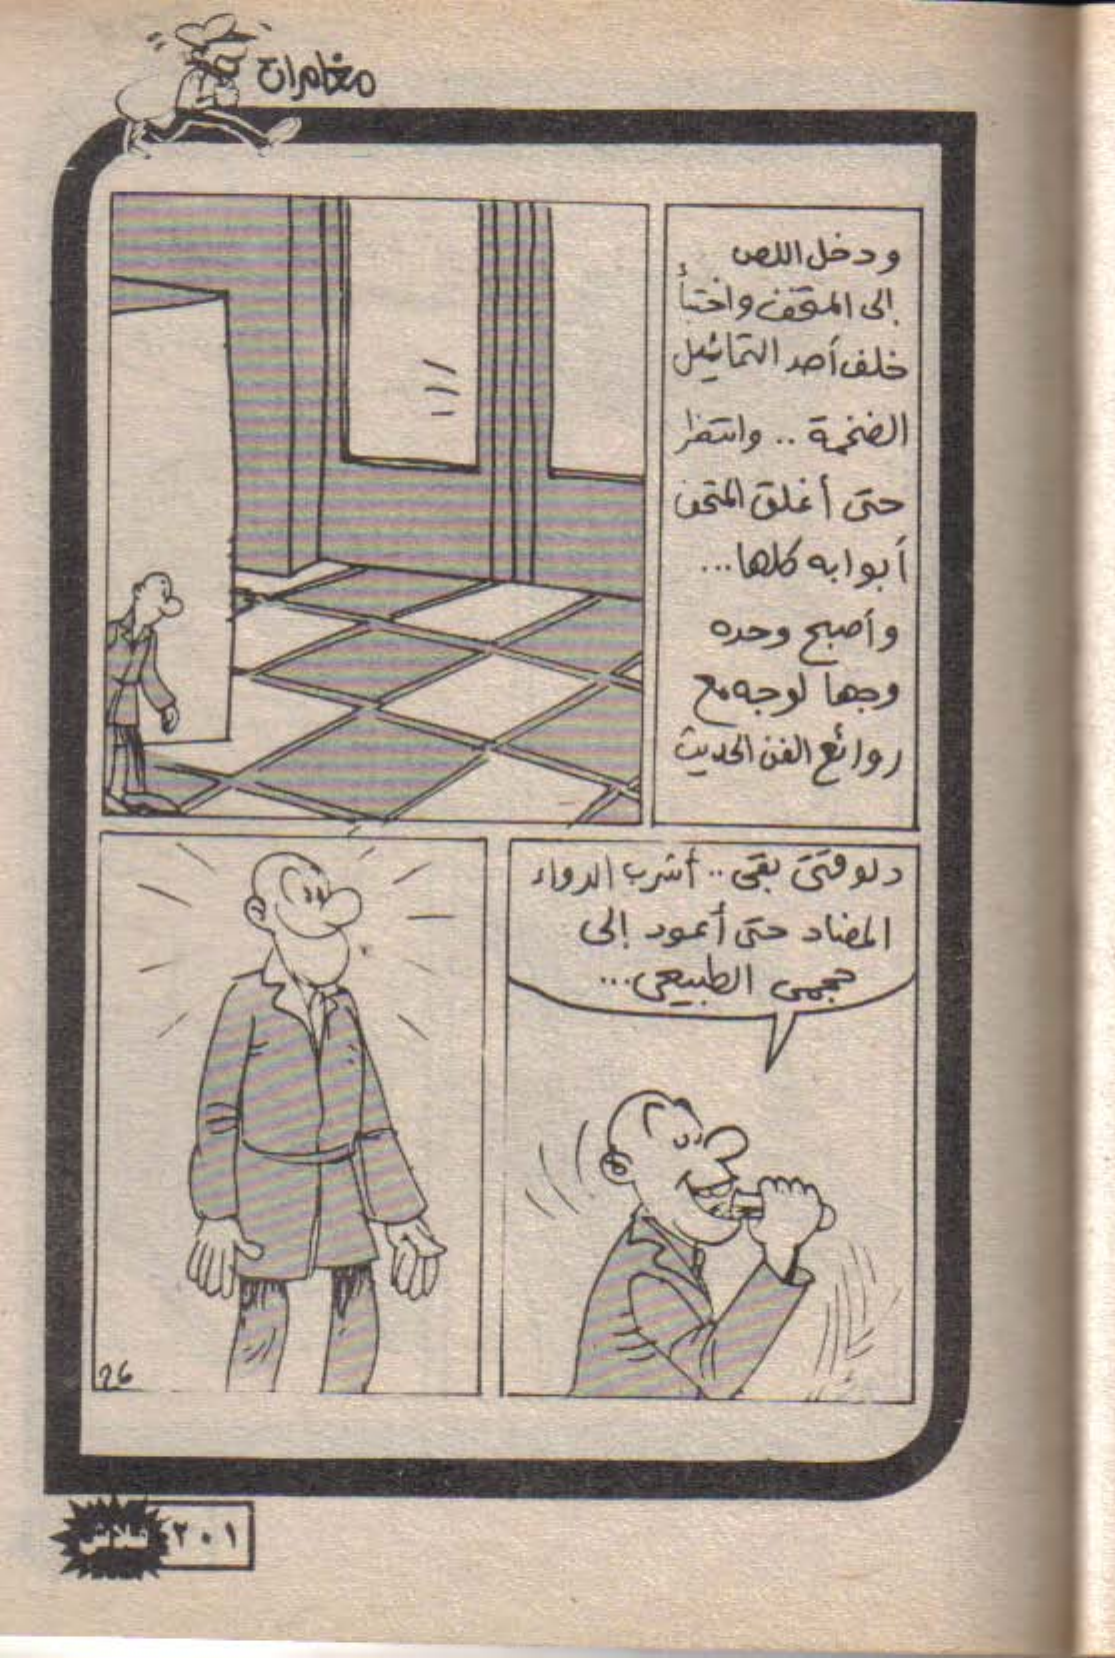 مغامرات
ودخل اللص
إلى المتحف واختبأ
خلف أحد التماثيل
الضخمة .. وانتظر
حتى أغلق المتحف
أبوابه كلها...
وأصبح وحده
وجهاً لوجه مع
روائع الفن الحديث
دلوقتى بقى .. أشرب الدواء
المضاد حتى أعود إلى
حجمى الطبيعى...
26
فلاش ٢٠١